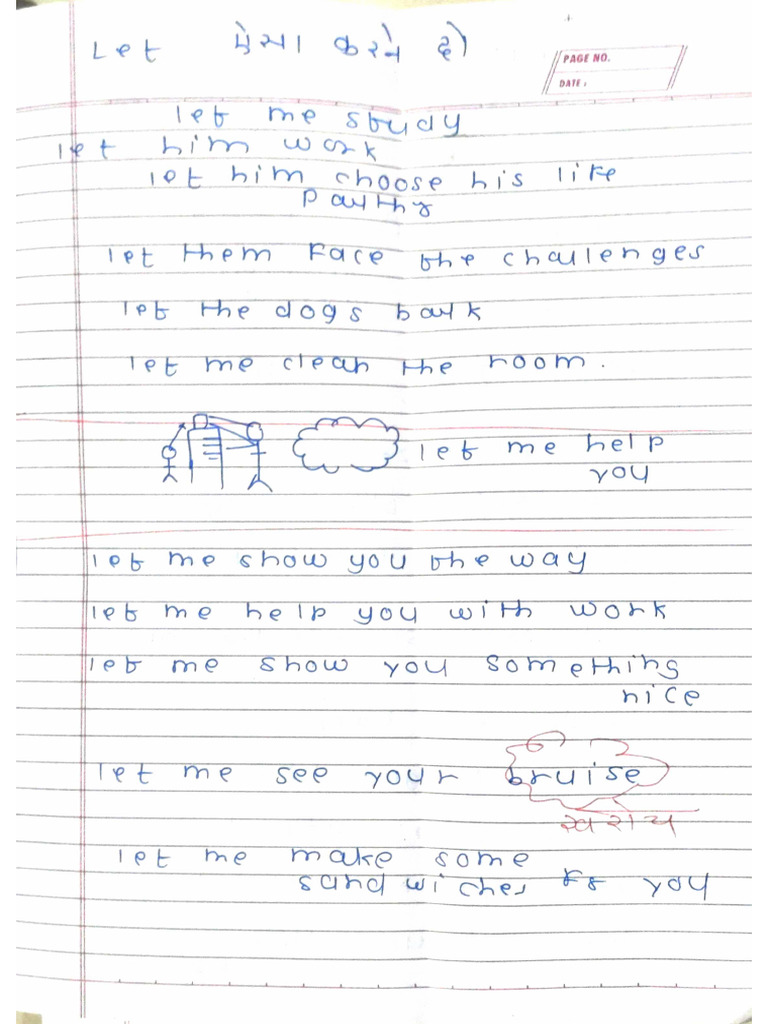 Let ऐसा करने दो
PAGE NO.
DATE :
let me study
let him work
let him choose his life
let them face the challenges
let the dogs bark
let me clean the room.
let me help
you
let me show you the way
let me help you with work
let me show you something
nice
let me see your bruise
let me make some
sandwiches for you